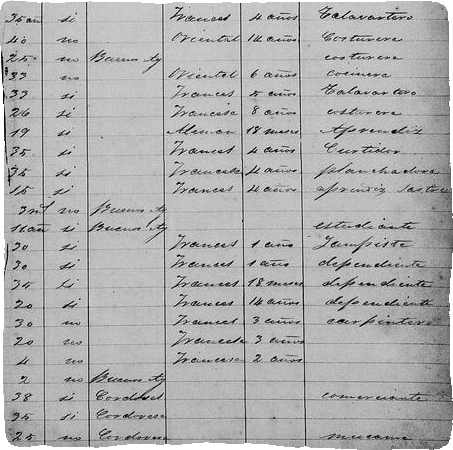 35 an si Frances 4 años Talavartero
40 no Oriental 14 años Costurera
25 no Buenos Ay costurera
33 no Oriental 6 años cocinera
33 si Frances 5 años Talavartero
26 si Francesa 8 años costurera
19 si Aleman 18 meses Aprendiz
35 si Frances 4 años Curtidor
35 si Francesa 4 años planchadora
15 si Frances 4 años aprentiz sastre
3 no Buenos Ay
11 an si Buenos Ay estudiante
30 si Frances 1 año Lampiste
30 si Frances 1 año dependiente
34 si Frances 18 meses dependiente
20 si Frances 14 años dependiente
30 no Frances 3 años carpintero
20 no Francesa 3 años
4 no Francesa 2 años
2 no Buenos Ay
38 si Cordobes comerciante
35 si Cordovesa
25 no Cordovesa mucama